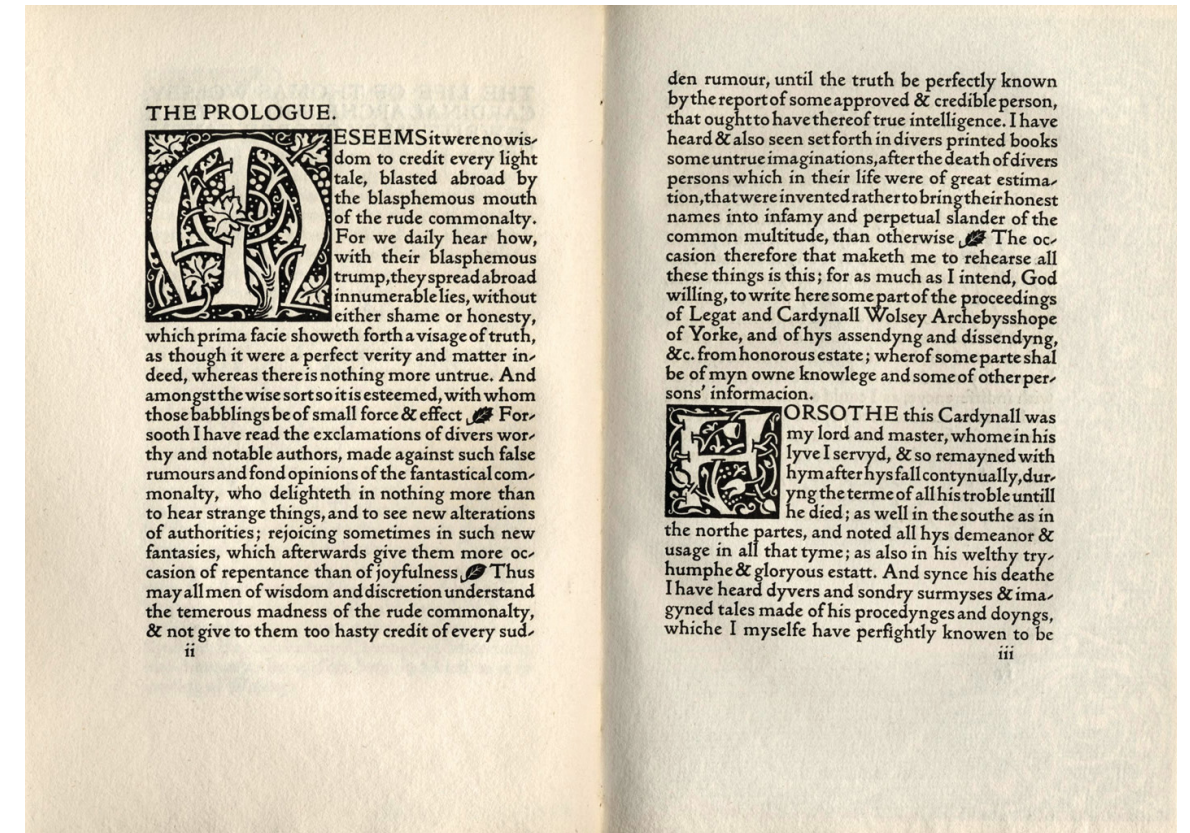 THE PROLOGUE.
MESEEMS it were no wis-
dom to credit every light
tale, blasted abroad by
the blasphemous mouth
of the rude commonalty.
For we daily hear how,
with their blasphemous
trump, they spread abroad
innumerable lies, without
either shame or honesty,
which prima facie showeth forth a visage of truth,
as though it were a perfect verity and matter in-
deed, whereas there is nothing more untrue. And
amongst the wise sort so it is esteemed, with whom
those babblings be of small force & effect ❧ For-
sooth I have read the exclamations of divers wor-
thy and notable authors, made against such false
rumours and fond opinions of the fantastical com-
monalty, who delighteth in nothing more than
to hear strange things, and to see new alterations
of authorities; rejoicing sometimes in such new
fantasies, which afterwards give them more oc-
casion of repentance than of joyfulness ❧ Thus
may all men of wisdom and discretion understand
the temerous madness of the rude commonalty,
& not give to them too hasty credit of every sud-
ii
den rumour, until the truth be perfectly known
by the report of some approved & credible person,
that ought to have thereof true intelligence. I have
heard & also seen set forth in divers printed books
some untrue imaginations, after the death of divers
persons which in their life were of great estima-
tion, that were invented rather to bring their honest
names into infamy and perpetual slander of the
common multitude, than otherwise ❧ The oc-
casion therefore that maketh me to rehearse all
these things is this; for as much as I intend, God
willing, to write here some part of the proceedings
of Legat and Cardynall Wolsey Archebysshope
of Yorke, and of hys assendyng and dissendyng,
&c. from honorous estate; wherof some parte shal
be of myn owne knowlege and some of other per-
sons' informacion.
FORSOTHE this Cardynall was
my lord and master, whome in his
lyve I servyd, & so remayned with
hym after hys fall contynually, dur-
yng the terme of all his troble untill
he died; as well in the southe as in
the northe partes, and noted all hys demeanor &
usage in all that tyme; as also in his welthy try-
humphe & gloryous estatt. And synce his deathe
I have heard dyvers and sondry surmyses & ima-
gyned tales made of his procedynges and doyngs,
whiche I myselfe have perfightly knowen to be
iii